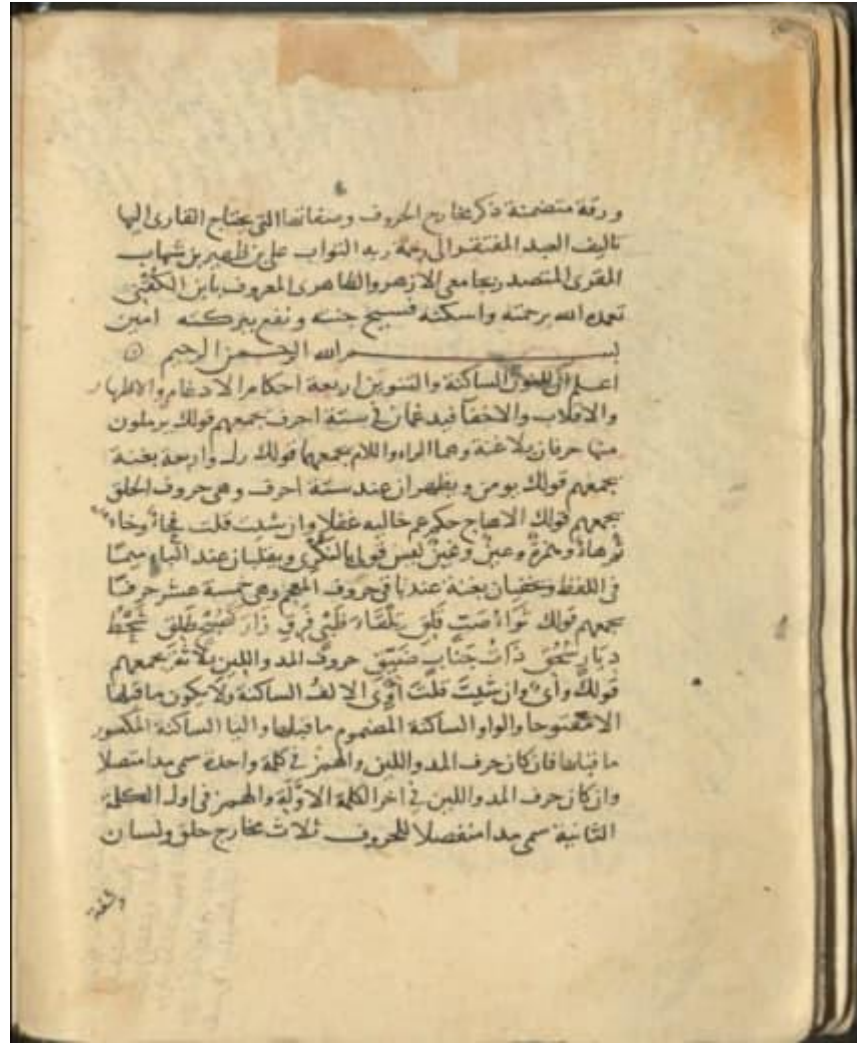 ورقة متضمنة ذكر مخارج الحروف وصفاتها التي يحتاج القارى اليها
تاليف العبد المفتقر الى رحمة ربه التواب على بن ظهير بن شهاب
المقرى المتصدر بجامعى الازهر والظاهرى المعروف بابن الكفتى
تغمده الله برحمته واسكنه فسيح جنته ونفع ببركته امين
بسم الله الرحمن الرحيم
اعلم ان للنون الساكنة والتنوين اربعة احكام الادغام والاظهار
والاقلاب والاخفا فيدغمان في ستة احرف جمعهم قولك يرملون
منها حرفان بلا غنة وهما الراء واللام يجمعهما قولك رل واربعة بغنة
يجمعهم قولك يومن ويظهران عند ستة احرف وهي حروف الحلق
يجمعهم قولك الا هاج حكم عم خاليه غفلا وان شيت قلت فحاء وخاء
ثم هاء وهمزة وعين وغين ليس قولى بالنكرى ويقلبان عند الباء ميما
في اللفظ ويخفيان بغنة عند باقى حروف المعجم وهى خمسة عشر حرفا
يجمعهم قولك
ديار ذات حروف المد واللين ثلاثة يجمعهم
قولك وأى وان شيت قلت أوى الالف الساكنة ولا يكون ما قبلها
الا مفتوحا والواو الساكنة المضموم ما قبلها واليا الساكنة المكسور
ما قبلها فان كان حرف المد واللين والهمز في كلمة واحدة سمى مدا متصلا
وان كان حرف المد واللين في اخر الكلمة الاولة والهمز في اول الكلمة
الثانية سمى مدا منفصلا للحروف ثلاث مخارج حلق ولسان
وشفة